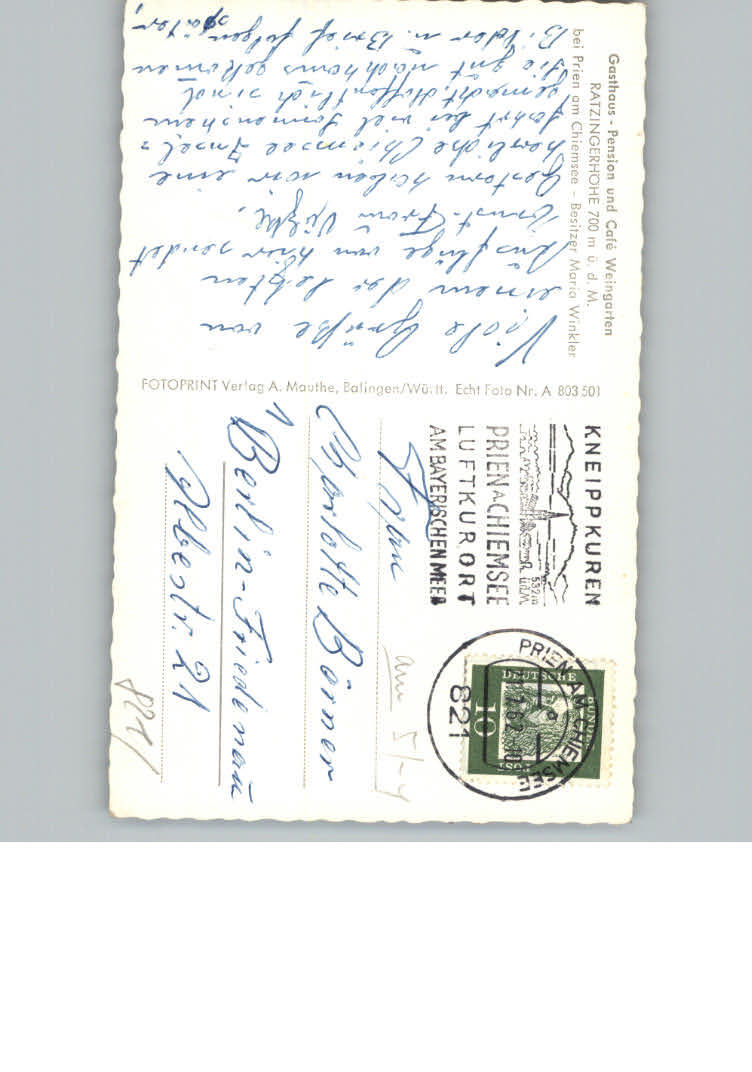 Gasthaus - Pension und Café Weingarten
RATZINGERHÖHE 700 m ü. d. M.
bei Prien am Chiemsee – Besitzer Maria Winkler
Viele Grüße von
einem der letzten
Ausflüge von hier sendet
Ernst. Frau
Gestern haben wir eine
herrliche Chiemsee Insel-
fahrt bei viel Sonnenschein
gemacht. Hoffentlich sind
Sie gut nachhaus gekommen
Bilder u. Brief folgen
später,
FOTOPRINT Verlag A. Mauthe, Balingen/Württ. Echt Foto Nr. A 803 501
KNEIPPKUREN
532 m ü.d.M.
PRIEN A CHIEMSEE
LUFTKURORT
AM BAYERISCHEN MEER
PRIEN AM CHIEMSEE
821
DEUTSCHE BUNDESPOST
10
Frau
Charlotte Börner
1 Berlin-Friedenau
Albestr. 21